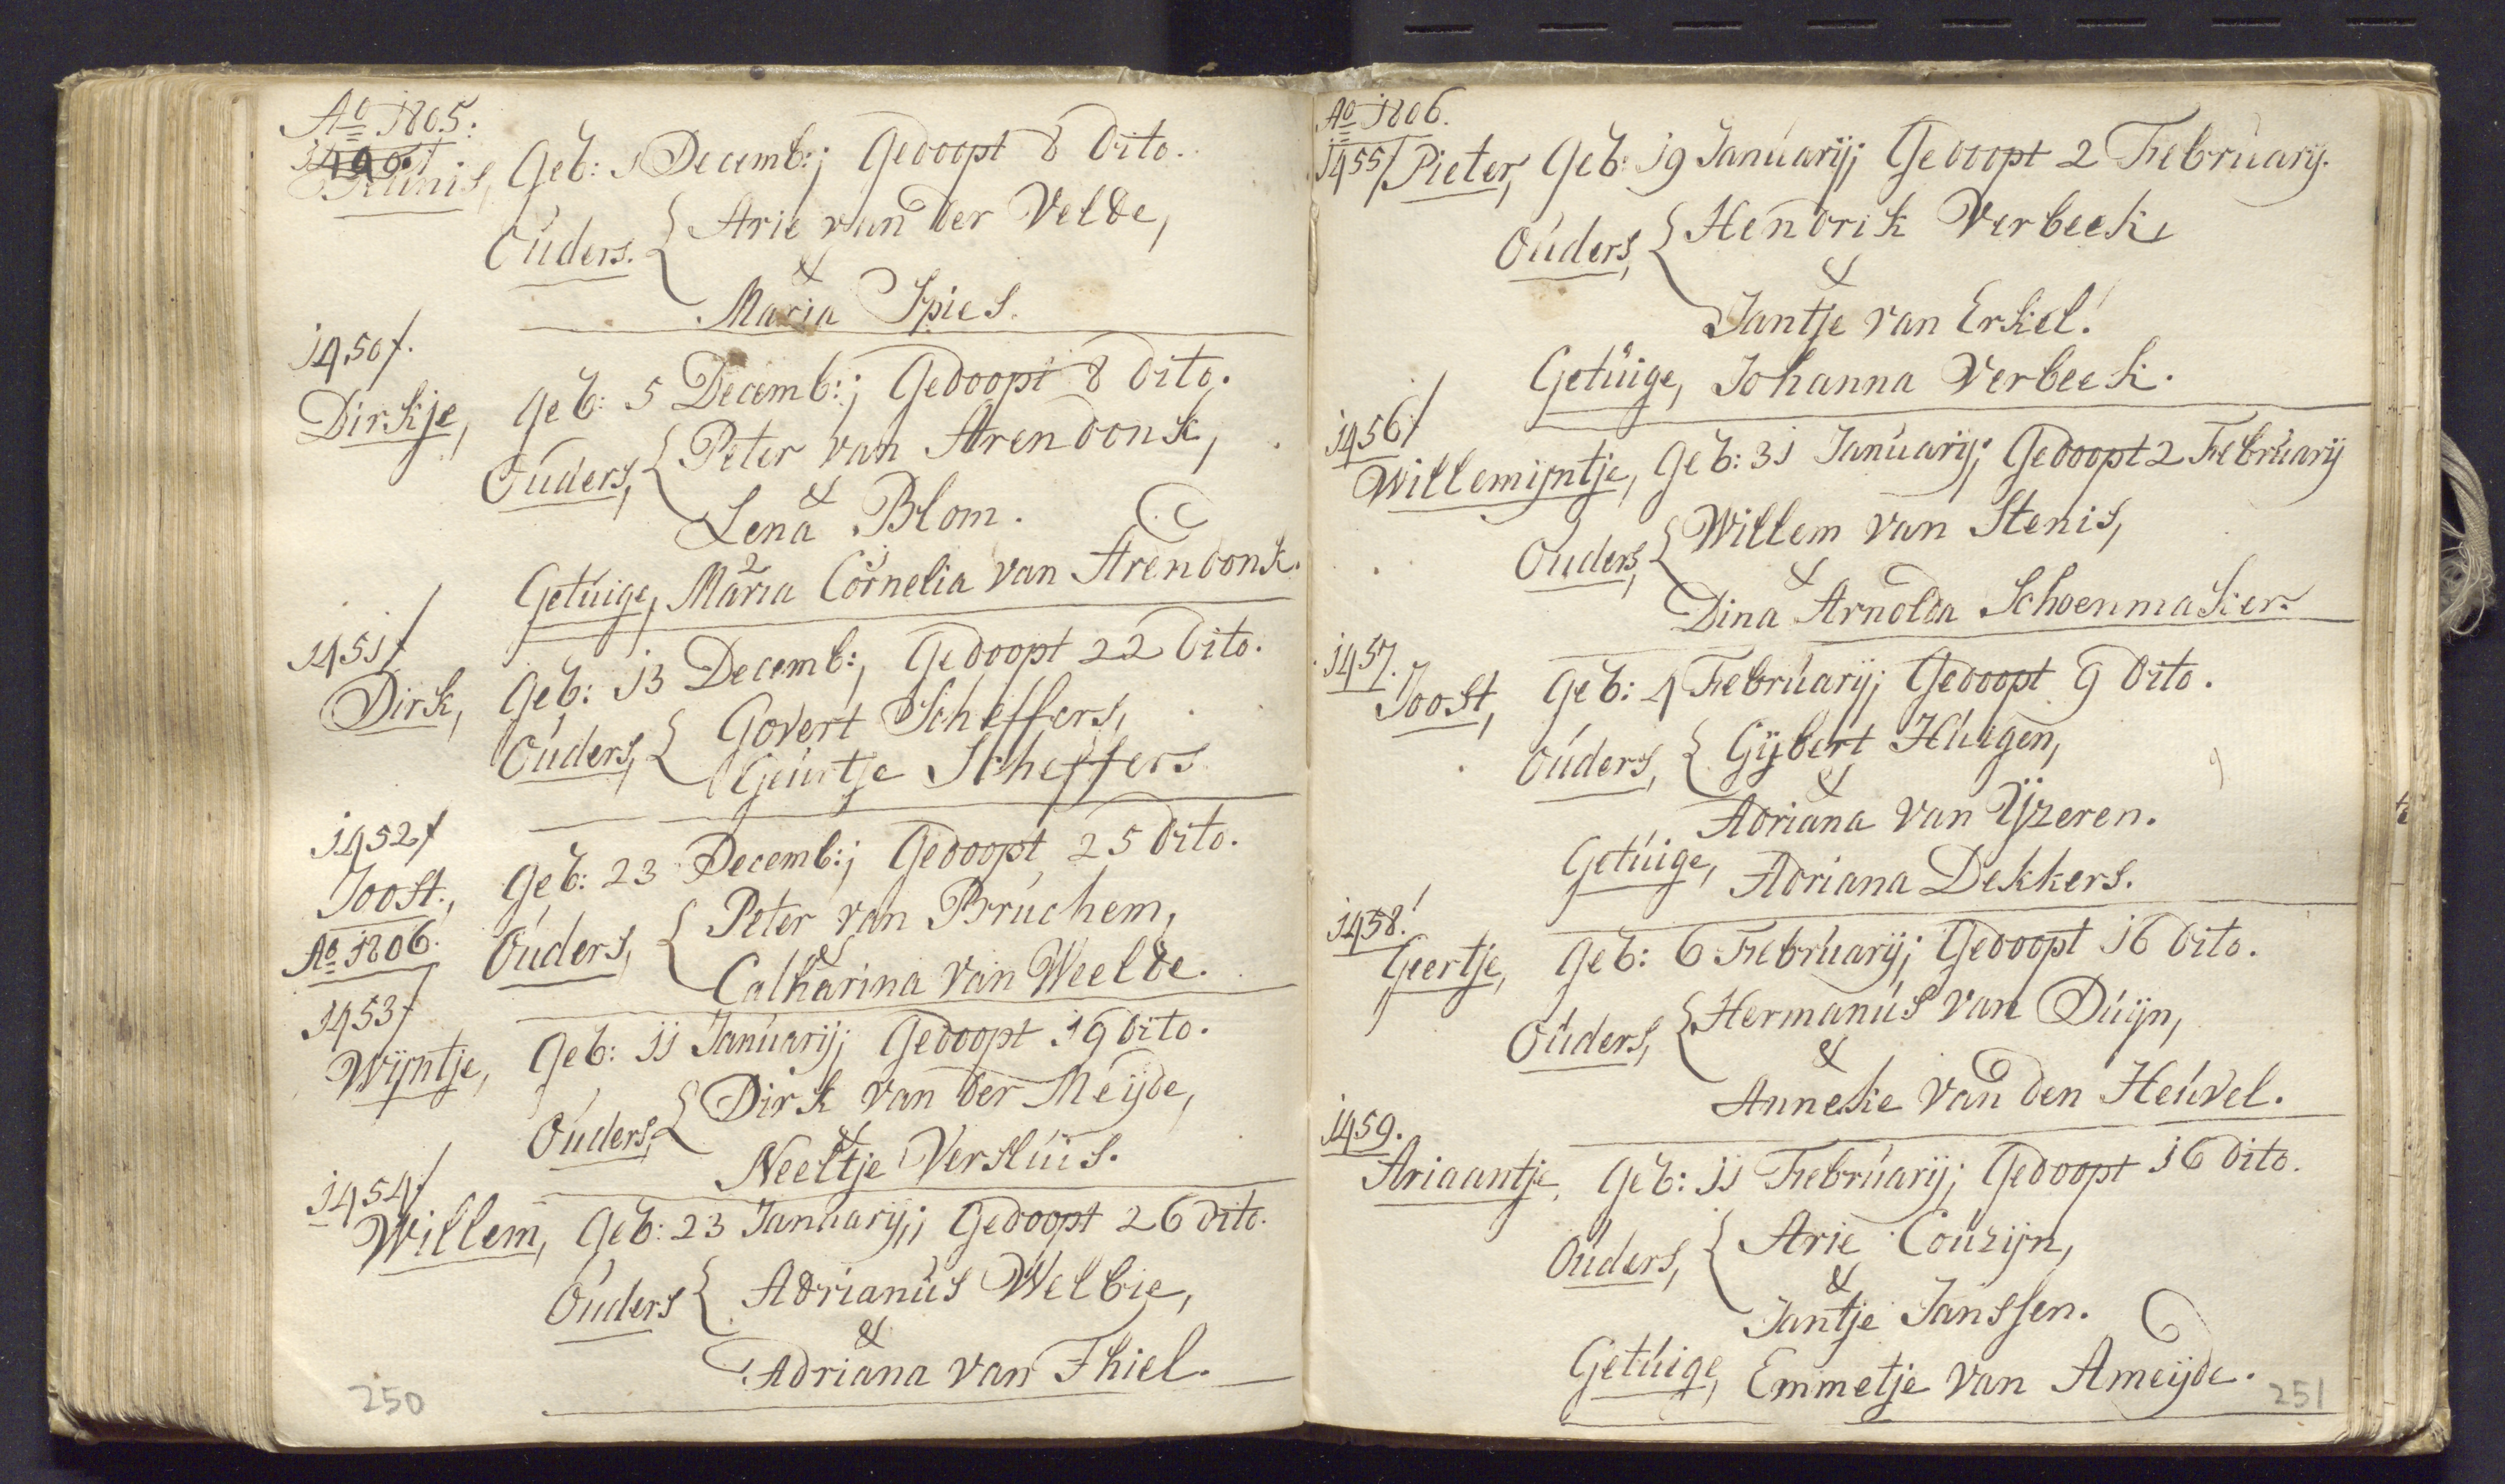 Ao 1805.
Teunis, Geb: 1 Decemb:; Gedoopt 8 dito.
Ouders. { Arie van der Velde,
&
Maria Spies.
1450.
Dirkje, Geb: 5 Decemb:; Gedoopt 8 dito.
Ouders, { Peter van Arendonk,
&
Lena Blom.
2 1
Getuige, Maria Cornelia van Arendonk.
1451
Dirk, Geb: 13 Decemb:, Gedoopt 22 dito.
Ouders, { Govert Scheffers,
Geurtje Scheffers
1452
Joost., Geb: 23 Decemb:; Gedoopt, 25 dito.
Ouders, { Peter van Bruchem,
&
Catharina van Weelde.
Ao 1806.
1453
Wijntje, Geb: 11 Januarij; Gedoopt 19 dito.
Ouders, { Dirk van der Meijde,
&
Neeltje Versluis.
1454
Willem, Geb: 23 Januarij; Gedoopt 26 dito.
Ouders { Adrianus Welbie,
&
Adriana van Thiel.
250
Ao 1806.
1455 Pieter, Geb: 19 Januarij; Gedoopt 2 February.
Ouders, { Hendrik Verbeek,
&
Jantje van Erkel.
Getuige, Johanna Verbeek.
1456
Willemijntje, Geb: 31 Januarij; Gedoopt 2 Februarij
Ouders, { Willem van Stenis,
&
Dina Arnolda Schoenmaker.
1457.
Joost, Geb: 4 Februarij; Gedoopt 9 dito.
Ouders, { Gijbert Huigen,
&
Adriana van Yzeren.
Getuige, Adriana Dekkers.
1458.
Geertje, Geb: 6 Februarij; Gedoopt 16 dito.
Ouders, { Hermanus van Duijn,
&
Anneke van den Heuvel.
1459.
Ariaantje, Geb: 11 Februarij; Gedoopt 16 dito.
Ouders, { Arie Couzijn,
&
Jantje Janssen.
Getuige, Emmetje van Ameijde.
251